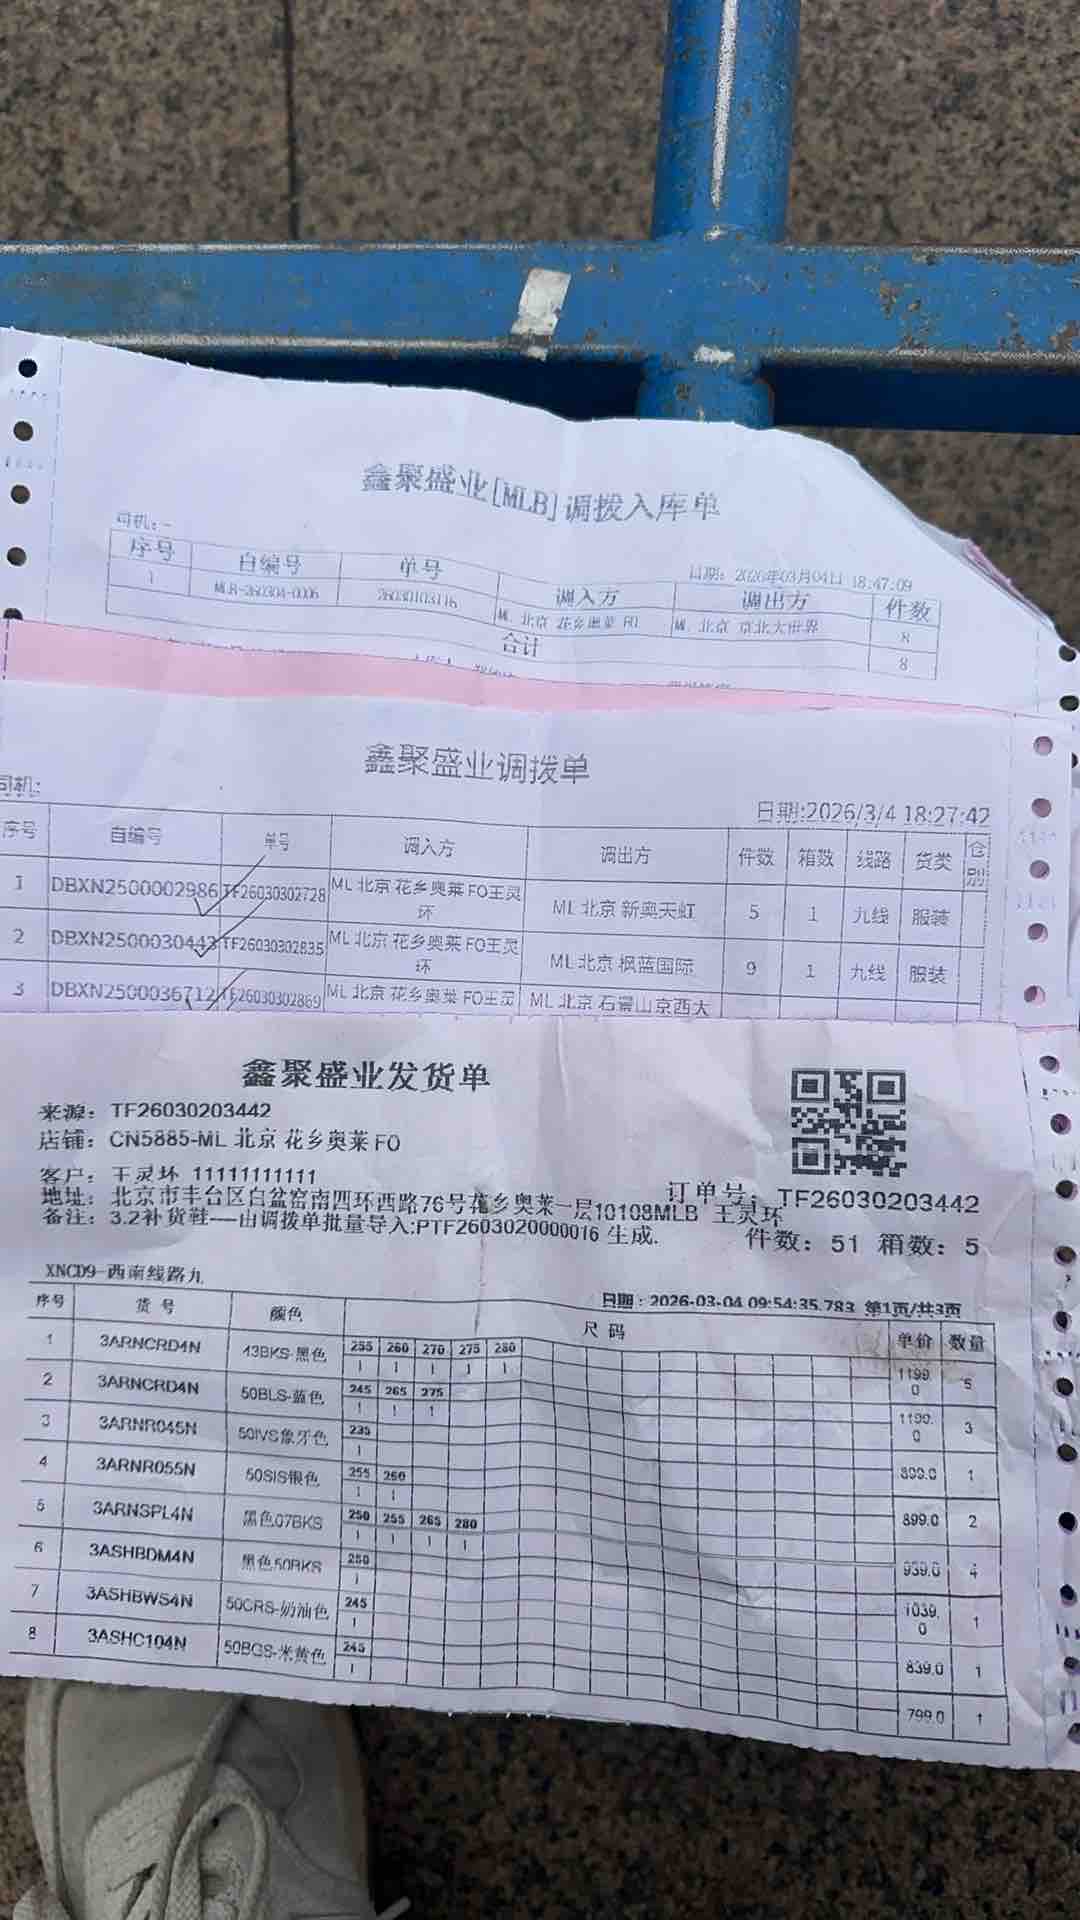 鑫聚盛业[MLB]调拨入库单
司机：-
日期：2026年03月04日 18:47:09
序号 自编号 单号 调入方 调出方 件数
1 MLB-260304-0006 26030103116 ML 北京 花乡奥莱 FO ML 北京 京北大世界 8
合计 8
鑫聚盛业调拨单
司机：
日期:2026/3/4 18:27:42
序号 自编号 单号 调入方 调出方 件数 箱数 线路 货类 仓别
1 DBXN2500002986 TF26030302728 ML 北京 花乡奥莱 FO王灵环 ML 北京 新奥天虹 5 1 九线 服装
2 DBXN2500030443 TF26030302835 ML 北京 花乡奥莱 FO王灵环 ML 北京 枫蓝国际 9 1 九线 服装
3 DBXN2500036712 TF26030302869 ML 北京 花乡奥莱 FO王灵 ML 北京 石景山京西大
鑫聚盛业发货单
来源：TF26030203442
店铺：CN5885-ML 北京 花乡奥莱 FO
客户：王灵环 11111111111
订单号：TF26030203442
地址：北京市丰台区白盆窑南四环西路76号花乡奥莱一层10108MLB 王灵环
备注：3.2补货鞋----由调拨单批量导入:PTF2603020000016 生成.
件数：51 箱数：5
XNCD9-西南线路九
日期：2026-03-04 09:54:35.783 第1页/共3页
序号 货号 颜色 尺码 单价 数量
1 3ARNCRD4N 43BKS-黑色 255 260 270 275 280 1199.0 5
1 1 1 1 1
2 3ARNCRD4N 50BLS-蓝色 245 265 275 1199.0 3
1 1 1
3 3ARNR045N 50IVS象牙色 235 899.0 1
1
4 3ARNR055N 50SIS银色 255 260 899.0 2
1 1
5 3ARNSPL4N 黑色07BKS 250 255 265 280 939.0 4
1 1 1 1
6 3ASHBDM4N 黑色50BKS 250 1039.0 1
1
7 3ASHBWS4N 50CRS-奶油色 245 839.0 1
1
8 3ASHC104N 50BGS-米黄色 245 799.0 1
1